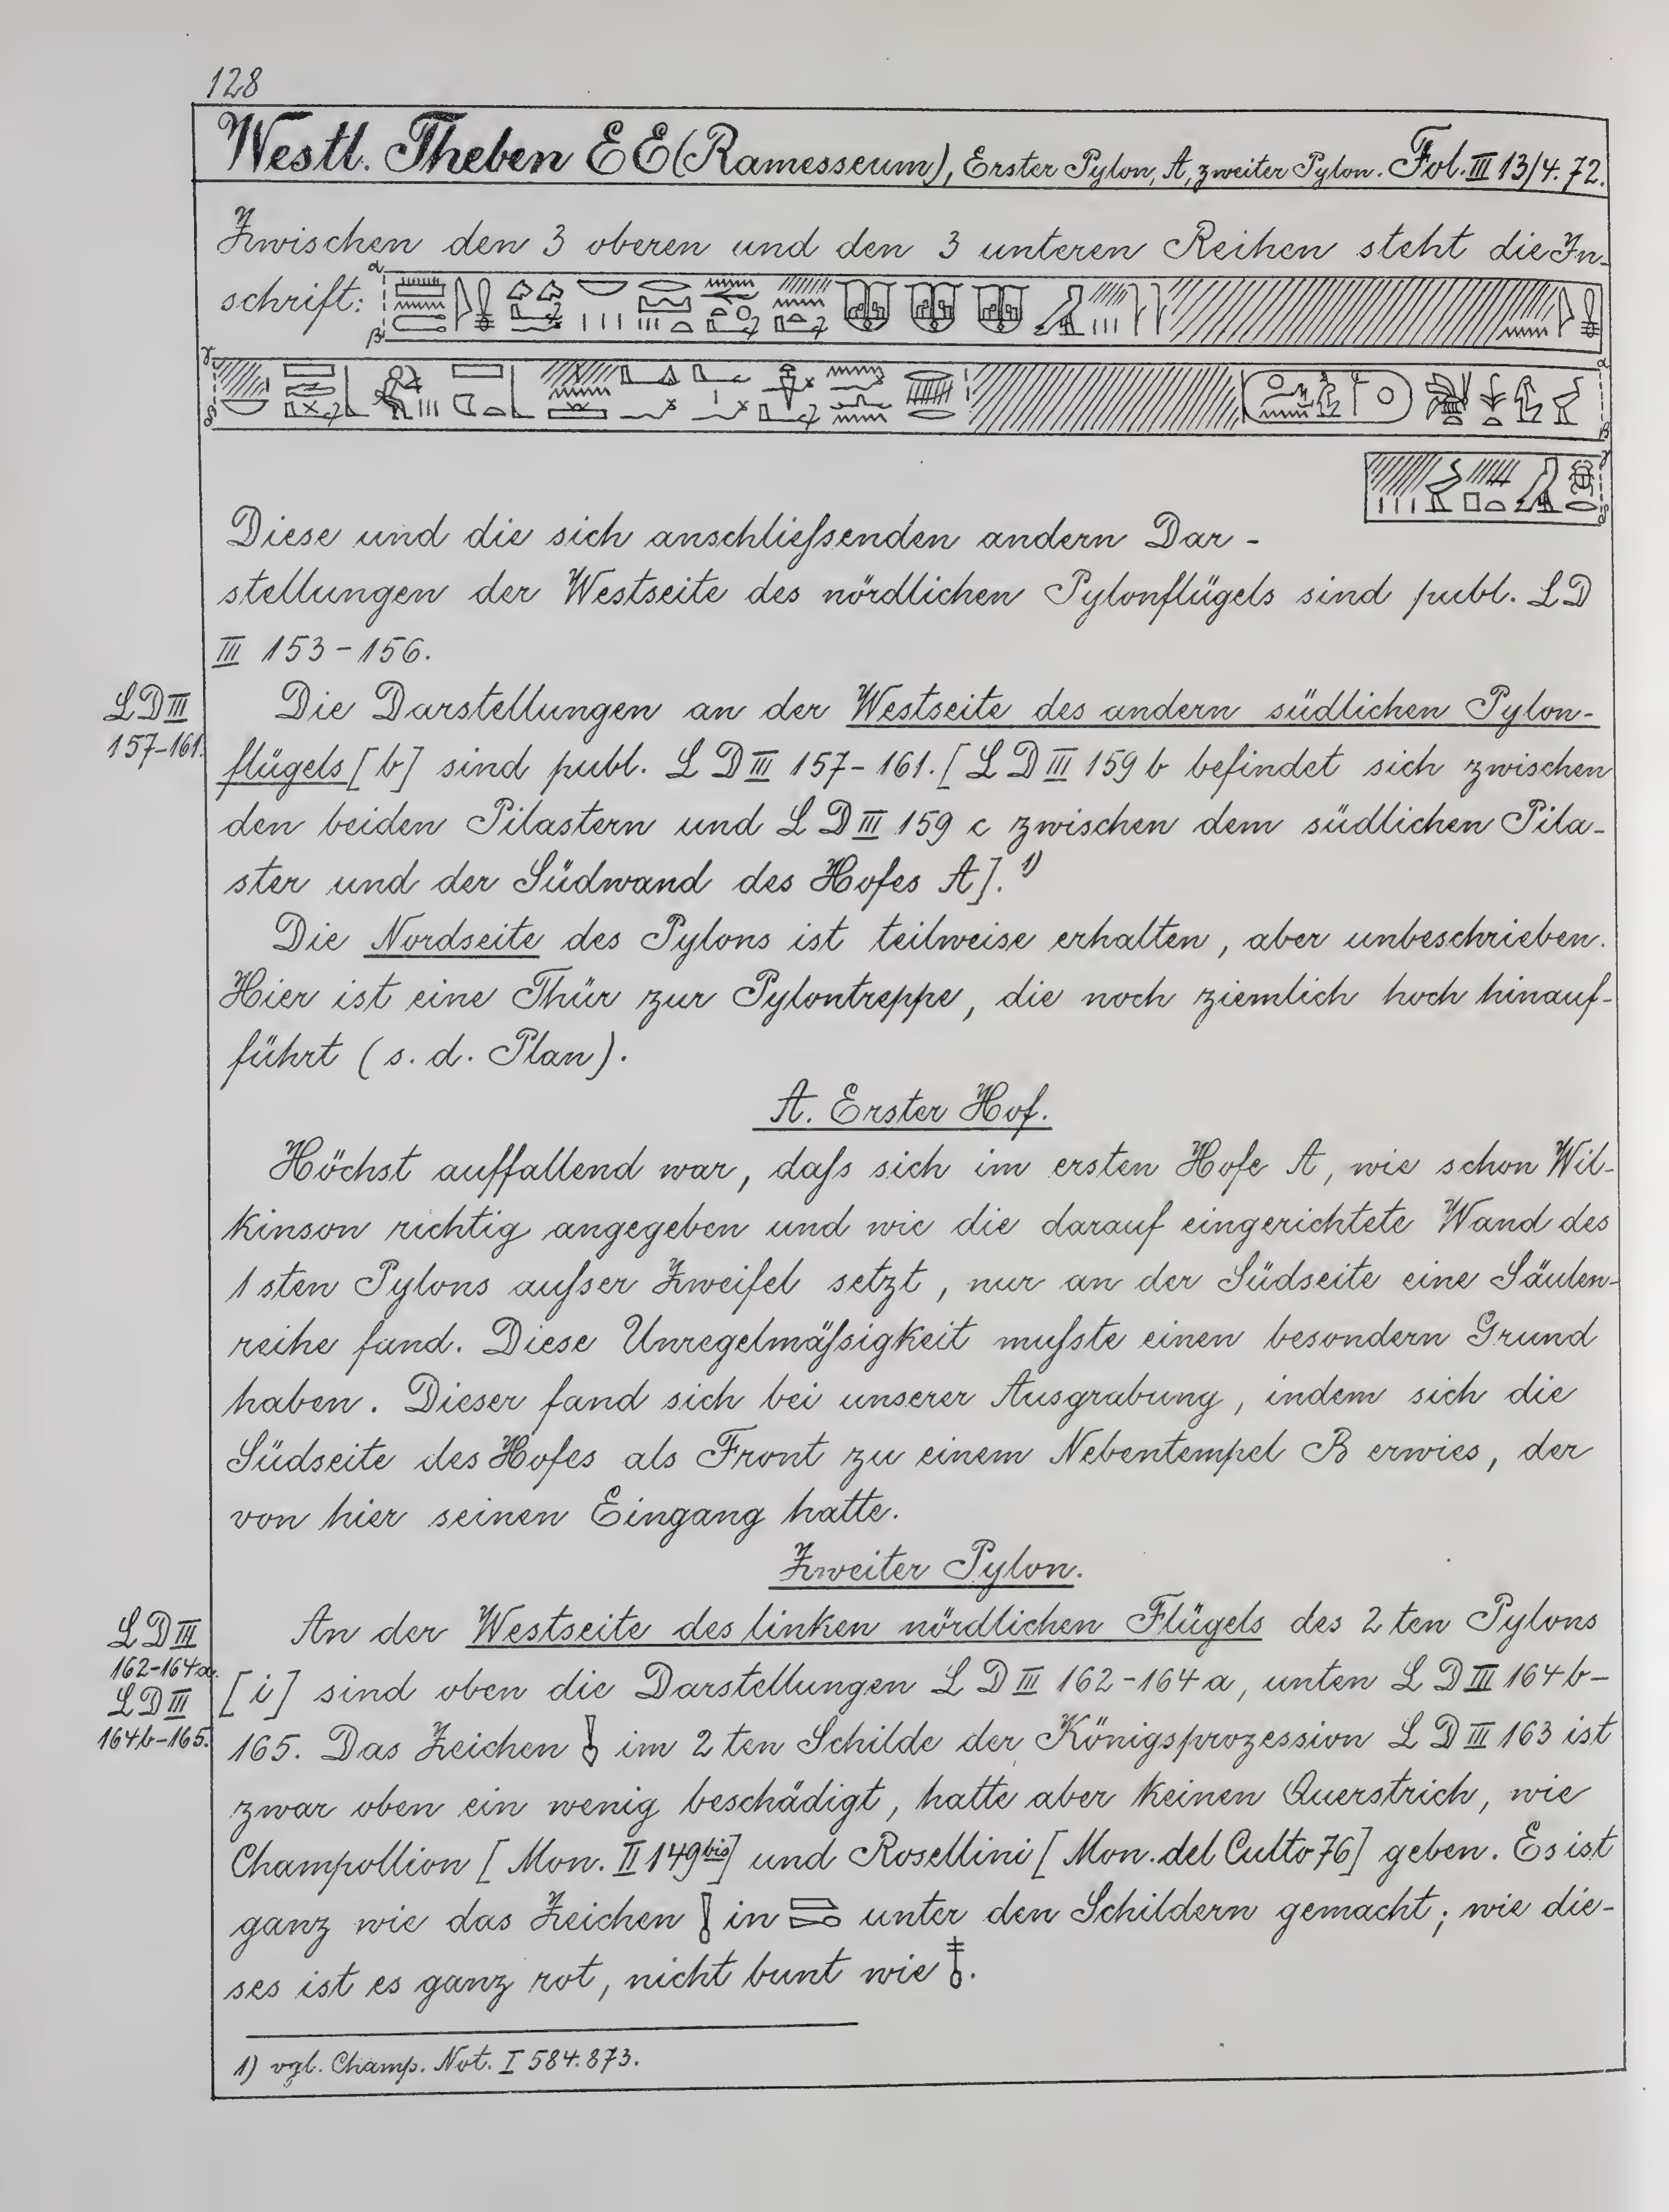 128
Westl. Theben EE (Ramesseum), Erster Pylon, A, zweiter Pylon. Fol. III 13/4. 72.
Zwischen den 3 oberen und den 3 unteren Reihen steht die In-
schrift:
α
β
γ
δ
α
β
γ
δ
Diese und die sich anschließenden andern Dar-
stellungen der Westseite des nördlichen Pylonflügels sind publ. LD
III 153-156.
LD III
157-161.
Die Darstellungen an der Westseite des andern südlichen Pylon-
flügels [b] sind publ. LD III 157-161. [LD III 159 b befindet sich zwischen
den beiden Pilastern und LD III 159 c zwischen dem südlichen Pila-
ster und der Südwand des Hofes A]. 1)
Die Nordseite des Pylons ist teilweise erhalten, aber unbeschrieben.
Hier ist eine Thür zur Pylontreppe, die noch ziemlich hoch hinauf-
führt (s. d. Plan).
A. Erster Hof.
Höchst auffallend war, daß sich im ersten Hofe A, wie schon Wil-
kinson richtig angegeben und wie die darauf eingerichtete Wand des
1sten Pylons außer Zweifel setzt, nur an der Südseite eine Säulen-
reihe fand. Diese Unregelmäßigkeit mußte einen besondern Grund
haben. Dieser fand sich bei unserer Ausgrabung, indem sich die
Südseite des Hofes als Front zu einem Nebentempel B erwies, der
von hier seinen Eingang hatte.
Zweiter Pylon.
LD III
162-164a.
LD III
164b-165.
An der Westseite des linken nördlichen Flügels des 2ten Pylons
[i] sind oben die Darstellungen LD III 162-164a, unten LD III 164b-
165. Das Zeichen im 2ten Schilde der Königsprozession LD III 163 ist
zwar oben ein wenig beschädigt, hatte aber keinen Querstrich, wie
Champollion [Mon. II 149 bis] und Rosellini [Mon. del Culto 76] geben. Es ist
ganz wie das Zeichen in unter den Schildern gemacht; wie die-
ses ist es ganz rot, nicht bunt wie .
1) vgl. Champ. Not. I 584. 873.